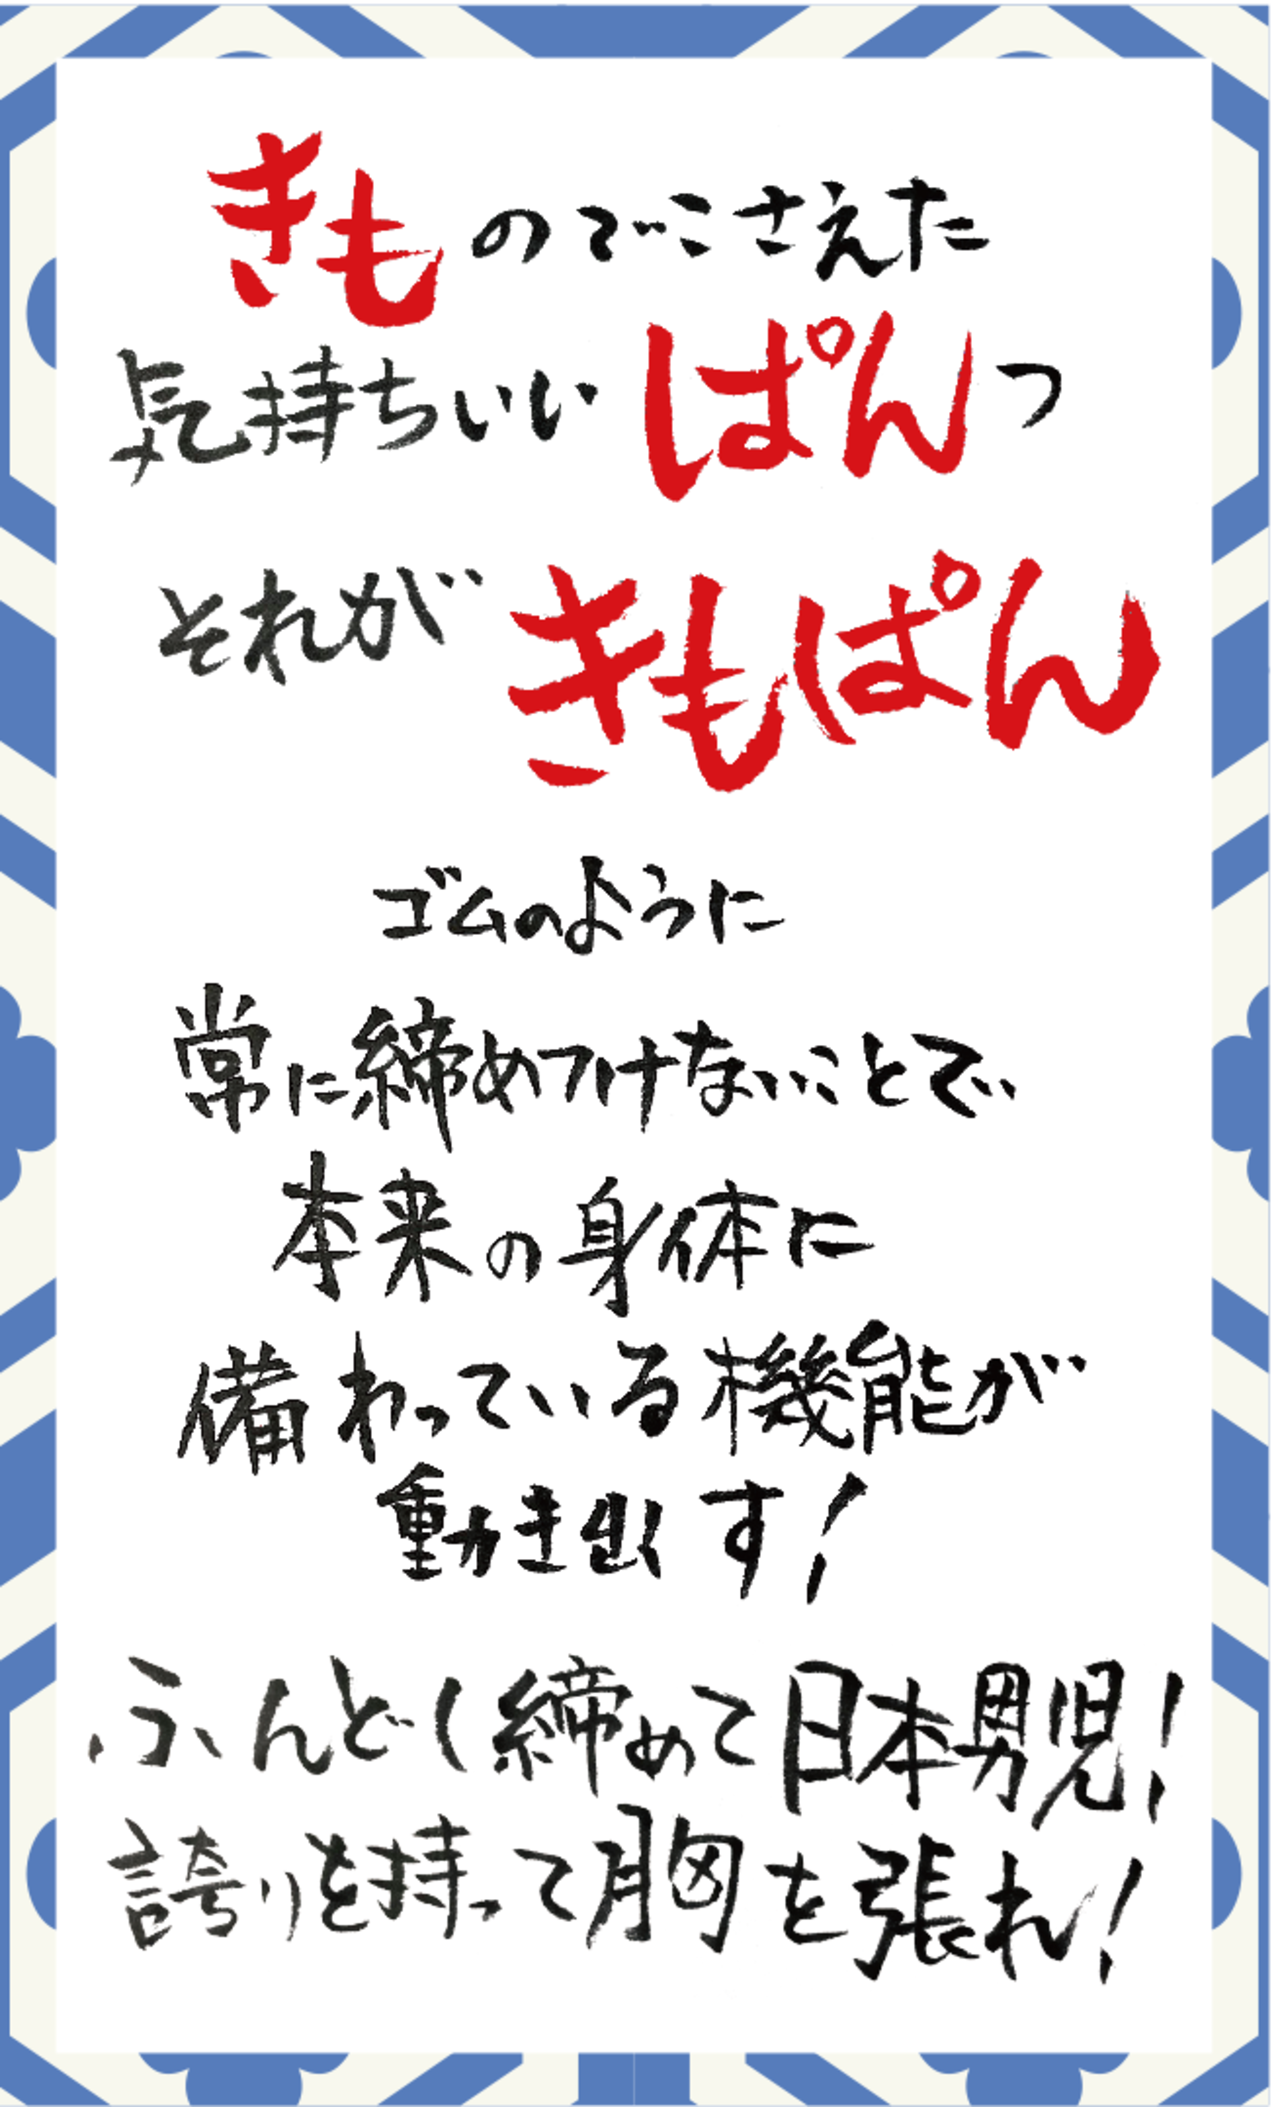 きものでこさえた
気持ちいいぱんつ
それがきもぱん
ゴムのように
常に締めつけないことで
本来の身体に
備わっている機能が
動き出す!
ふんどし締めて日本男児!
誇りを持って胸を張れ!